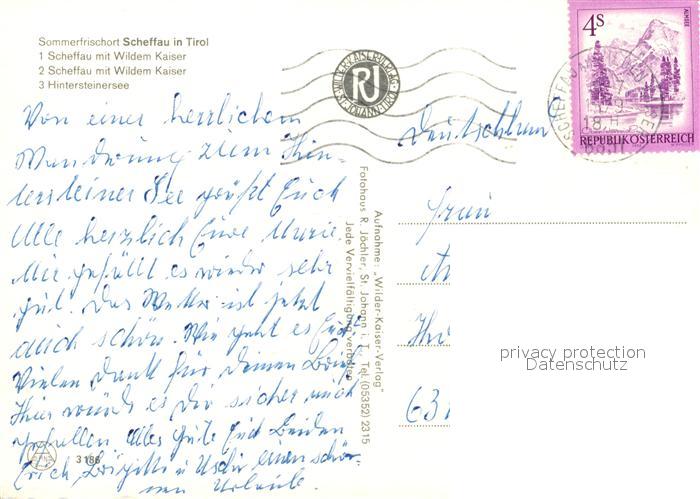 Sommerfrischort Scheffau in Tirol
1 Scheffau mit Wildem Kaiser
2 Scheffau mit Wildem Kaiser
3 Hintersteinersee
Von einer herrlichen
Wanderung zum Hin-
tersteiner See grüßt Euch
Alle herzlich Eure
Mir gefällt es wieder sehr
gut. Das Wetter ist jetzt
auch schön. Wie geht es Euch?
Vielen Dank für Deinen
Hier würde es Dir sicher auch
gefallen. Alles Gute Euch Beiden
Erich, Brigitte u. einen schö-
nen Urlaub.
3186
Aufnahme: „Wilder-Kaiser-Verlag"
Fotohaus R. Jöchler, St. Johann i. T., Tel. (05352) 2315
Jede Vervielfältigung verboten
WILDER-KAISER-VERLAG
RJ
ST. JOHANN-TIROL
4S
ALMSEE
REPUBLIK ÖSTERREICH
SCHEFFAU
18
Deutschland
Frau
631
privacy protection
Datenschutz